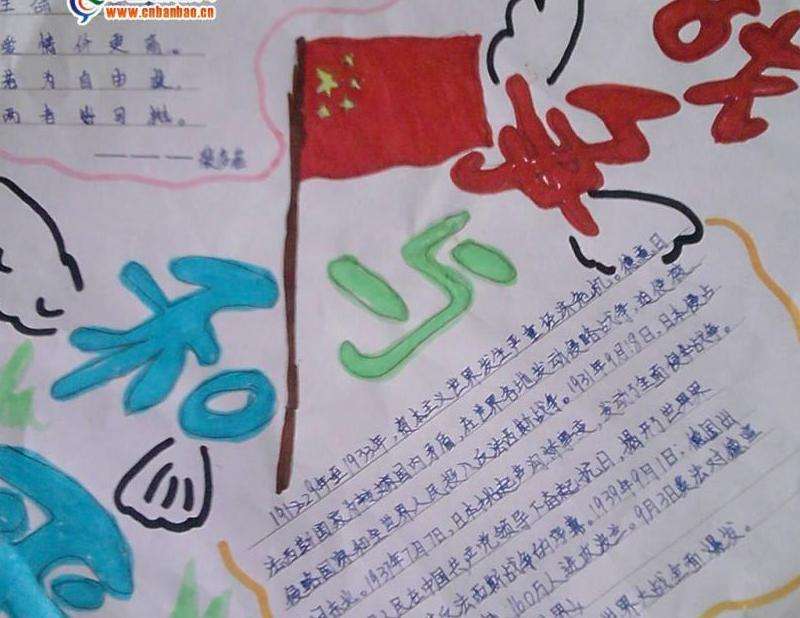 www.cnbanbao.cn
生命
爱情价更高。
若为自由故,
两者皆可抛。
———裴多菲
和
与
争
1929年至1933年,资本主义世界发生严重经济危机。德意日
法西斯国家为转嫁国内矛盾,在世界各地发动侵略战争,迫使被
侵略国家和全世界人民投入反法西斯战争。1931年9月18日,日本侵占
1937年7月7日,日本挑起卢沟桥事变,发动了全面侵华战争。
人民在中国共产党领导下奋起抗日,揭开了世界
反法西斯战争的序幕。1939年9月1日,德国出
160万人进攻波兰。9月3日英法对德宣
世界大战全面爆发。